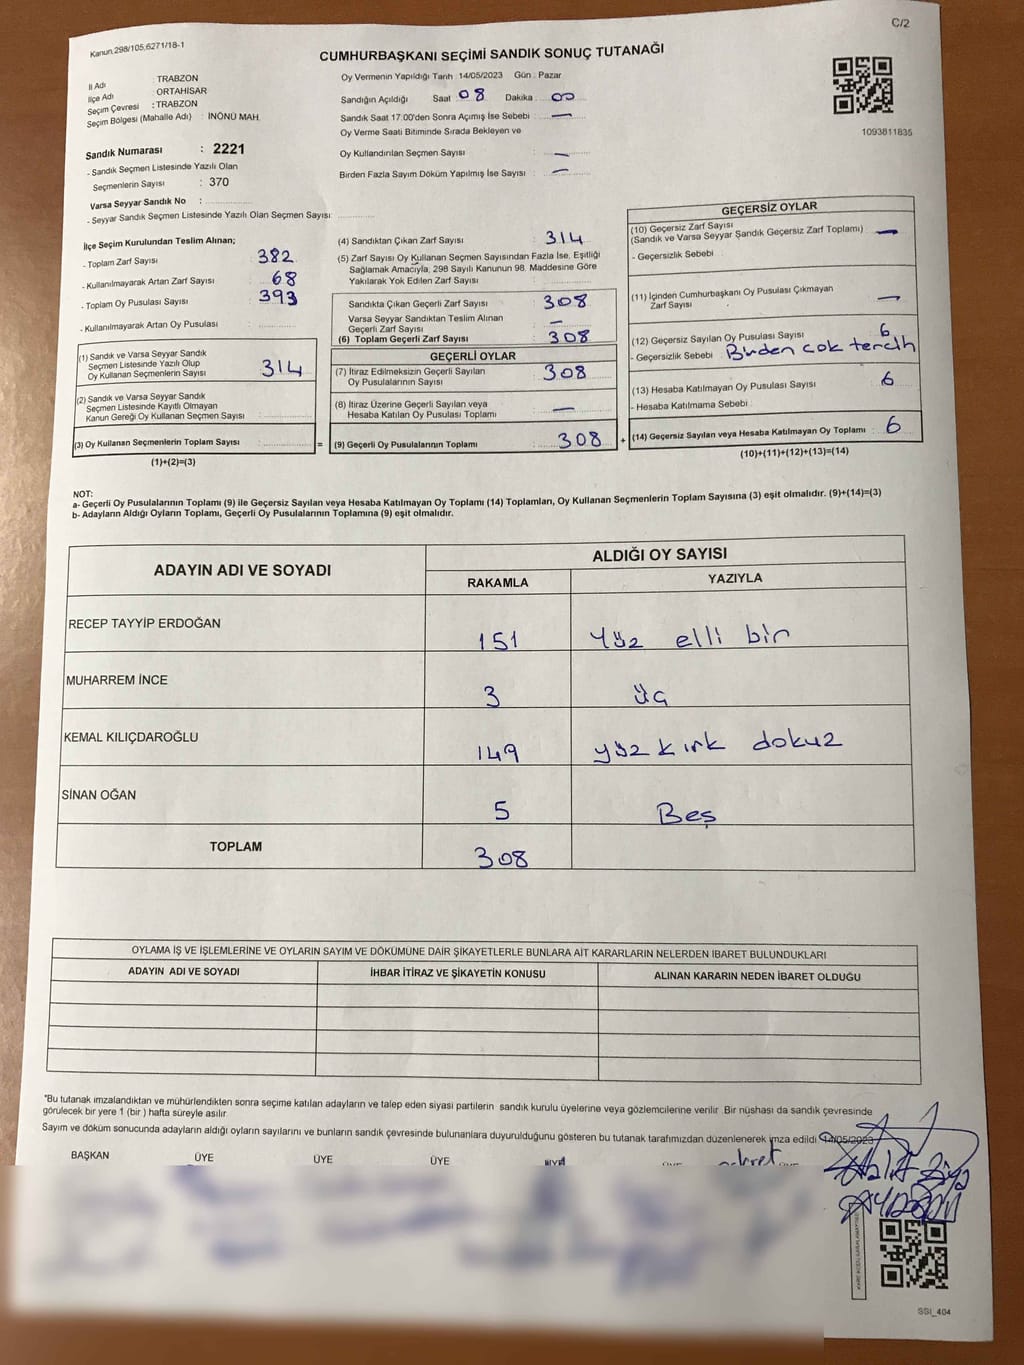 C/2
Kanun 298/105,6271/18-1
CUMHURBAŞKANI SEÇİMİ SANDIK SONUÇ TUTANAĞI
İl Adı : TRABZON
İlçe Adı : ORTAHİSAR
Seçim Çevresi : TRABZON
Seçim Bölgesi (Mahalle Adı) : İNÖNÜ MAH.
Sandık Numarası : 2221
- Sandık Seçmen Listesinde Yazılı Olan
Seçmenlerin Sayısı : 370
Varsa Seyyar Sandık No :
- Seyyar Sandık Seçmen Listesinde Yazılı Olan Seçmen Sayısı:
Oy Vermenin Yapıldığı Tarih : 14/05/2023 Gün : Pazar
Sandığın Açıldığı Saat 08 Dakika 00
Sandık Saat 17:00'den Sonra Açımış İse Sebebi : —
Oy Verme Saati Bitiminde Sırada Bekleyen ve
Oy Kullandırılan Seçmen Sayısı : —
Birden Fazla Sayım Döküm Yapılmış İse Sayısı : —
1093811835
İlçe Seçim Kurulundan Teslim Alınan;
- Toplam Zarf Sayısı : 382
- Kullanılmayarak Artan Zarf Sayısı : 68
- Toplam Oy Pusulası Sayısı : 393
- Kullanılmayarak Artan Oy Pusulası :
(1) Sandık ve Varsa Seyyar Sandık
Seçmen Listesinde Yazılı Olup
Oy Kullanan Seçmenlerin Sayısı : 314
(2) Sandık ve Varsa Seyyar Sandık
Seçmen Listesinde Kayıtlı Olmayan
Kanun Gereği Oy Kullanan Seçmen Sayısı :
(3) Oy Kullanan Seçmenlerin Toplam Sayısı : =
(1)+(2)=(3)
(4) Sandıktan Çıkan Zarf Sayısı : 314
(5) Zarf Sayısı Oy Kullanan Seçmenlerden Fazla İse, Eşitliği
Sağlamak Amacıyla, 298 Sayılı Kanunun 98. Maddesine Göre
Yakılarak Yok Edilen Zarf Sayısı :
Sandıkta Çıkan Geçerli Zarf Sayısı : 308
Varsa Seyyar Sandıktan Teslim Alınan
Geçerli Zarf Sayısı : —
(6) Toplam Geçerli Zarf Sayısı : 308
GEÇERLİ OYLAR
(7) İtiraz Edilmeksizin Geçerli Sayılan
Oy Pusulalarının Sayısı : 308
(8) İtiraz Üzerine Geçerli Sayılan veya
Hesaba Katılan Oy Pusulası Toplamı : —
(9) Geçerli Oy Pusulalarının Toplamı : 308 +
GEÇERSİZ OYLAR
(10) Geçersiz Zarf Sayısı
(Sandık ve Varsa Seyyar Sandık Geçersiz Zarf Toplamı) : —
- Geçersizlik Sebebi :
(11) İçinden Cumhurbaşkanı Oy Pusulası Çıkmayan
Zarf Sayısı : —
(12) Geçersiz Sayılan Oy Pusulası Sayısı : 6
- Geçersizlik Sebebi : Birden çok tercih
(13) Hesaba Katılmayan Oy Pusulası Sayısı : 6
- Hesaba Katılmama Sebebi :
(14) Geçersiz Sayılan veya Hesaba Katılmayan Oy Toplamı : 6
(10)+(11)+(12)+(13)=(14)
NOT:
a- Geçerli Oy Pusulalarının Toplamı (9) ile Geçersiz Sayılan veya Hesaba Katılmayan Oy Toplamı (14) Toplamları, Oy Kullanan Seçmenlerin Toplam Sayısına (3) eşit olmalıdır. (9)+(14)=(3)
b- Adayların Aldığı Oyların Toplamı, Geçerli Oy Pusulalarının Toplamına (9) eşit olmalıdır.
ADAYIN ADI VE SOYADI ALDIĞI OY SAYISI
RAKAMLA YAZIYLA
RECEP TAYYİP ERDOĞAN 151 Yüz elli bir
MUHARREM İNCE 3 üç
KEMAL KILIÇDAROĞLU 149 yüz kırk dokuz
SİNAN OĞAN 5 Beş
TOPLAM 308
OYLAMA İŞ VE İŞLEMLERİNE VE OYLARIN SAYIM VE DÖKÜMÜNE DAİR ŞİKAYETLERLE BUNLARA AİT KARARLARIN NELERDEN İBARET BULUNDUKLARI
ADAYIN ADI VE SOYADI İHBAR İTİRAZ VE ŞİKAYETİN KONUSU ALINAN KARARIN NEDEN İBARET OLDUĞU
"Bu tutanak imzalandıktan ve mühürlendikten sonra seçime katılan adayların ve talep eden siyasi partilerin sandık kurulu üyelerine veya gözlemcilerine verilir. Bir nüshası da sandık çevresinde
görülecek bir yere 1 (bir ) hafta süreyle asılır.
Sayım ve döküm sonucunda adayların aldığı oyların sayılarını ve bunların sandık çevresinde bulunanlara duyurulduğunu gösteren bu tutanak tarafımızdan düzenlenerek imza edildi 14/05/2023
BAŞKAN ÜYE ÜYE ÜYE ÜYE
SSI_404